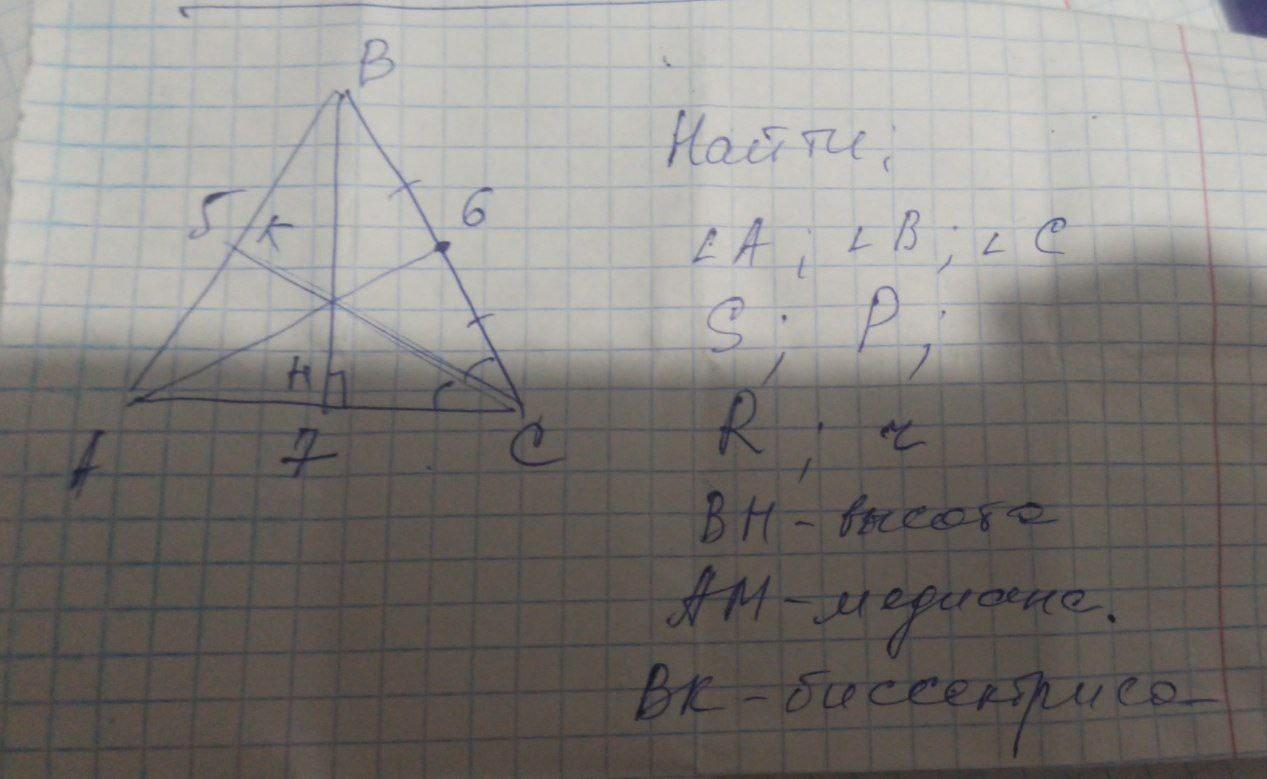 B
5
K
6
H
A
7
C
Найти;
∠A; ∠B; ∠C
S; P;
R; r
BH - высота
AM - медиана.
BK - биссектриса